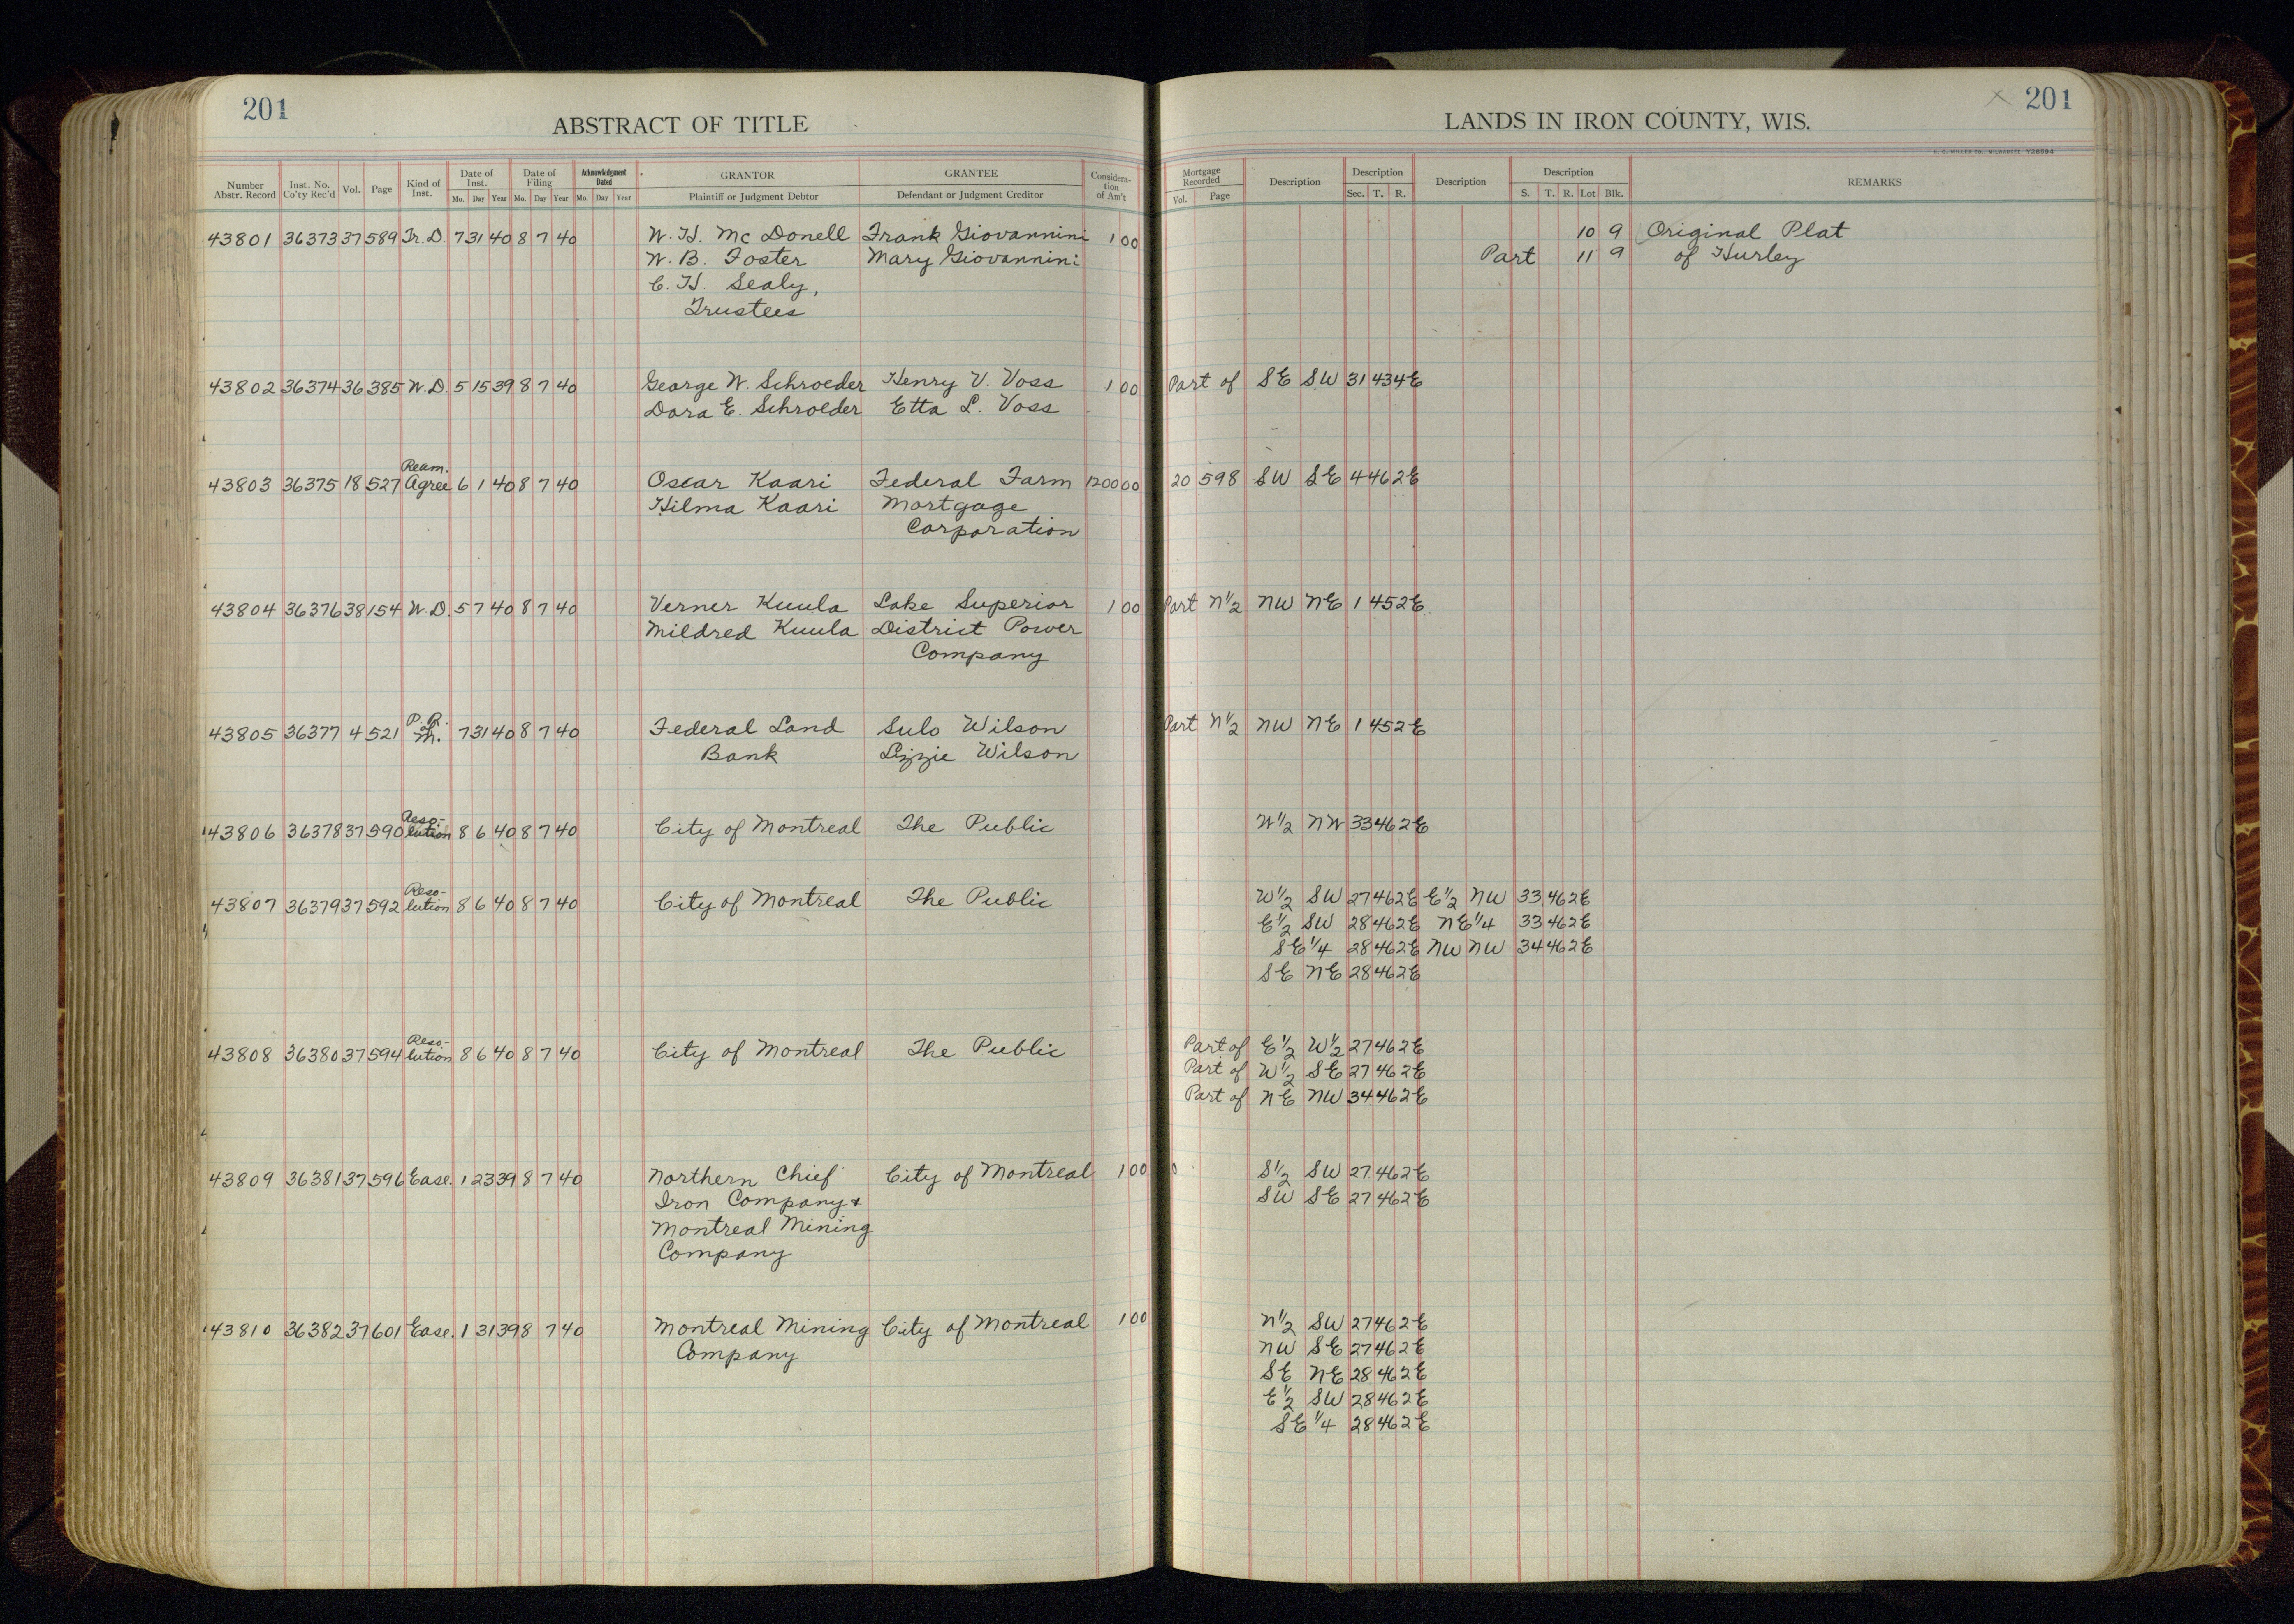 201
ABSTRACT OF TITLE
LANDS IN IRON COUNTY, WIS.
201
H. C. MILLER CO., MILWAUKEE Y28594
Number Abstr. Record Inst. No. Co'ty Rec'd Vol. Page Kind of Inst. Date of Inst. Mo. Day Year Date of Filing Mo. Day Year Acknowledgment Dated Mo. Day Year GRANTOR Plaintiff or Judgment Debtor GRANTEE Defendant or Judgment Creditor Consideration of Am't Mortgage Recorded Vol. Page Description Description Sec. T. R. Description Description S. T. R. Lot Blk. REMARKS
43801 36373 37 589 Tr. D. 7 31 40 8 7 40 W. H. Mc Donell Frank Giovannini 1 00 10 9 Original Plat
W. B. Foster Mary Giovannini Part 11 9 of Hurley
C. H. Sealy,
Trustees
43802 36374 36 385 W. D. 5 15 39 8 7 40 George W. Schroeder Henry V. Voss 1 00 Part of SE SW 31 43 4E
Dora E. Schroeder Etta L. Voss
Ream.
43803 36375 18 527 Agree 6 1 40 8 7 40 Oscar Kaari Federal Farm 1200 00 20 598 SW SE 4 46 2E
Hilma Kaari Mortgage
Corporation
43804 36376 38 154 W. D 5 7 40 8 7 40 Verner Kuula Lake Superior 1 00 Part N½ NW NE 1 45 2E
Mildred Kuula District Power
Company
P. R.
of
43805 36377 4 521 M. 7 31 40 8 7 40 Federal Land Sulo Wilson Part N½ NW NE 1 45 2E
Bank Lizzie Wilson
Reso-
43806 36378 37 590 lution 8 6 40 8 7 40 City of Montreal The Public W½ NW 33 46 2E
Reso-
43807 36379 37 592 lution 8 6 40 8 7 40 City of Montreal The Public W½ SW 27 46 2E E½ NW 33 46 2E
E½ SW 28 46 2E NE¼ 33 46 2E
SE¼ 28 46 2E NW NW 34 46 2E
SE NE 28 46 2E
Reso-
43808 36380 37 594 lution 8 6 40 8 7 40 City of Montreal The Public Part of E½ W½ 27 46 2E
Part of W½ SE 27 46 2E
Part of NE NW 34 46 2E
43809 36381 37 596 Ease. 1 23 39 8 7 40 Northern Chief City of Montreal 1 00 S½ SW 27 46 2E
Iron Company + SW SE 27 46 2E
Montreal Mining
Company
43810 36382 37 601 Ease. 1 31 39 8 7 40 Montreal Mining City of Montreal 1 00 N½ SW 27 46 2E
Company NW SE 27 46 2E
SE NE 28 46 2E
E½ SW 28 46 2E
SE¼ 28 46 2E